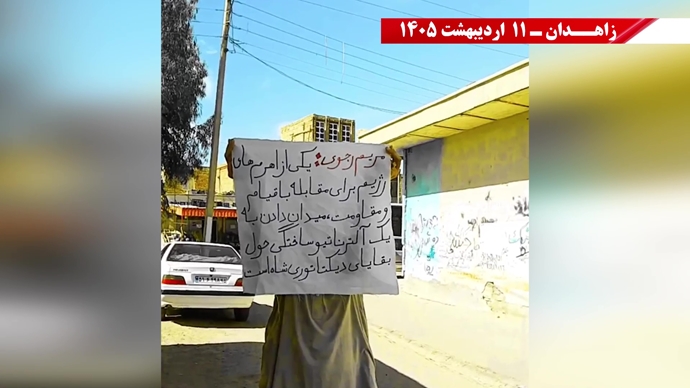 زاهـدان ــ ۱۱ اردیبهشت ۱۴۰۵
مریم رجوی: یکی از اهرم‌های
رژیم برای مقابله با قیام
و مقاومت، میدان دادن به
یک آلترناتیو ساختگی حول
بقایای دیکتاتوری شاه است